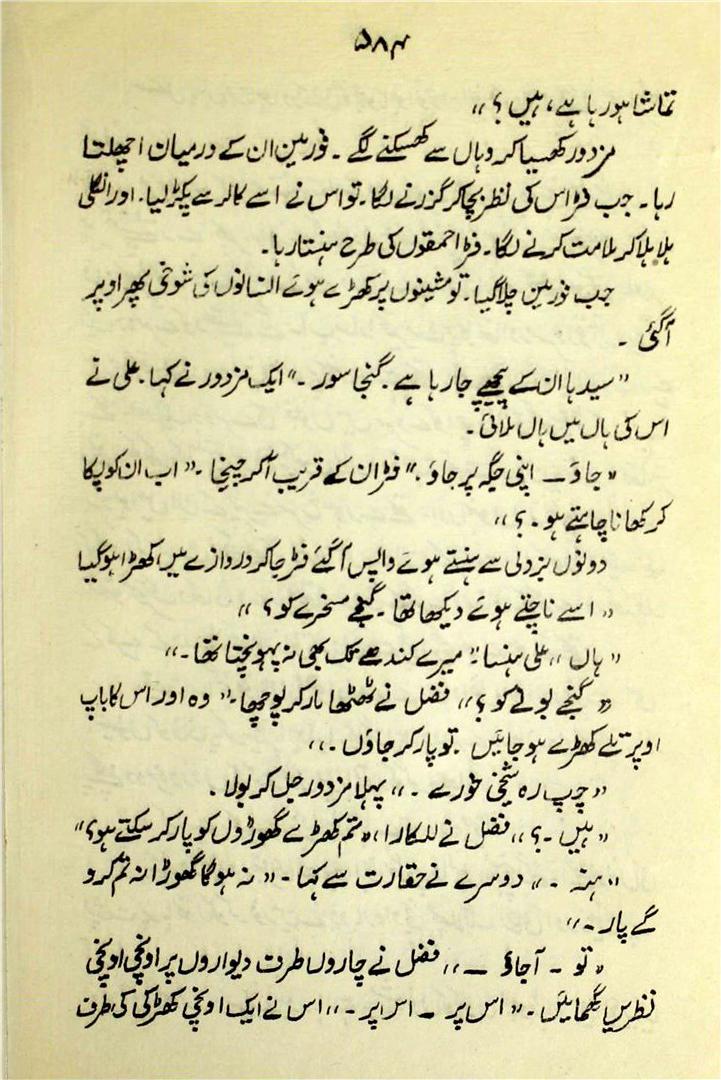 ۵۸۴
تماشا ہو رہا ہے، ہیں ؟،،
مزدور کھسیا کر وہاں سے کھسکنے لگے ۔ فورمین ان کے درمیان اچھلتا
رہا ۔ جب فٹر اس کی نظر بچا کر گزرنے لگا۔ تو اس نے اسے کالر سے پکڑ لیا۔ اور انگلی
ہلا ہلا کر ملامت کرنے لگا۔ فٹر احمقوں کی طرح ہنستا رہا۔
جب فورمین چلا گیا۔ تو مشینوں پر کھڑے ہوئے انسانوں کی شوخی پھر اوپر
آگئی ۔
”سیدھا ان کے پیچھے جا رہا ہے ۔ گنجا سور ۔“ ایک مزدور نے کہا۔ علی نے
اس کی ہاں میں ہاں ملائی ۔
”جاؤ — اپنی جگہ پر جاؤ ۔“ فٹر ان کے قریب آکر چیخا ۔ ”اب ان کو پکا
کر کھانا چاہتے ہو ۔ ؟“
دونوں بزدلی سے ہنستے ہوئے واپس آگئے فٹر جا کر دروازے میں اکھڑا ہوگیا
”اسے ناچتے ہوئے دیکھا تھا ۔ گنجے مسخرے کو ؟“
”ہاں“ علی ہنسا ”میرے کندھے تک بھی نہ پہونچتا تھا ۔“
”گنجے بونے کو ؟“ فضل نے ٹھٹھا مار کر پوچھا۔ ”وہ اور اس کا باپ
اوپر تلے کھڑے ہو جائیں ۔ تو پار کر جاؤں ۔“
”چپ رہ شیخی خورے ۔“ پہلا مزدور جل کر بولا ۔
”ہیں ۔ ؟“ فضل نے للکارا، ”تم کھڑے گھوڑوں کو پار کر سکتے ہو؟“
”ہنہ ۔“ دوسرے نے حقارت سے کہا ۔ ”نہ ہوگا گھوڑا نہ تم کرو
گے پار ۔“
”تو ۔ آجاؤ —“ فضل نے چاروں طرف دیواروں پر اونچی اونچی
نظریں گھمائیں ۔ ”اس پر — اس پر ۔“ اس نے ایک اونچی کھڑکی کی طرف